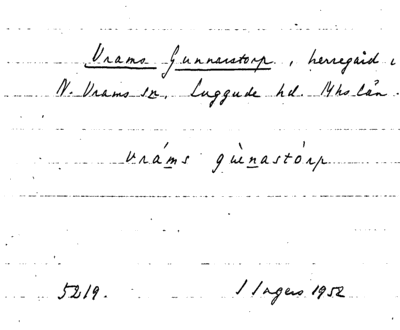 Vrams Gunnarstorp, herregård i
N. Vrams sn. Luggude hd. Mhs län.
vráms gùnastórp
5219. I Ingers 1952